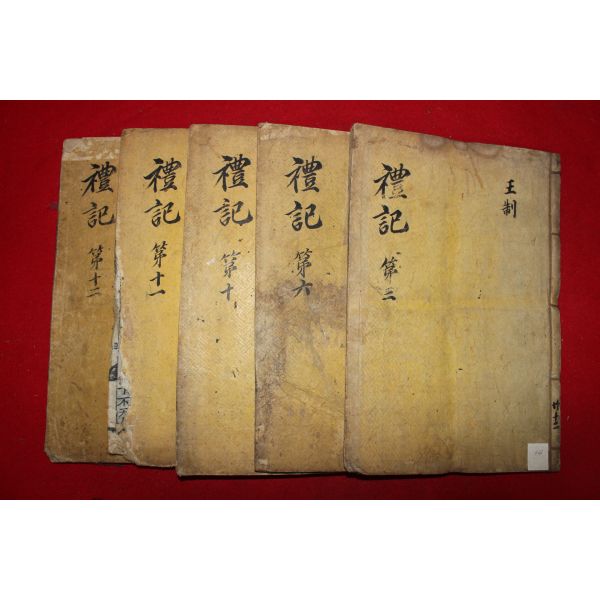 王制
禮記 第三
禮記 第六
禮記 第十
禮記 第十一
禮記 第十二